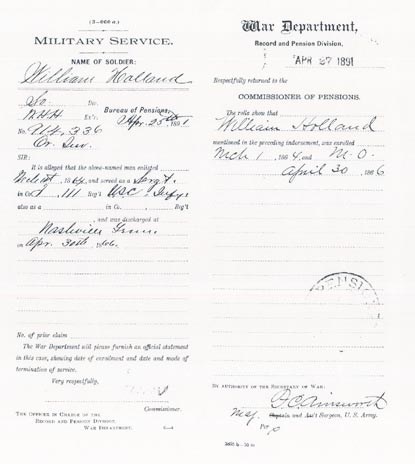 (3—060 a.)
MILITARY SERVICE.
NAME OF SOLDIER:
William Holland
So. Div.
Ex'r. Bureau of Pensions,
Apr. 25th 1891
No.
SIR:
It is alleged that the above-named man enlisted
1864, and served as a Sergt.
in Co. I, 111 Reg't USC Infy
also as a in Co. Reg't
and was discharged at
Nashville Tenn
on Apr. 30th
No. of prior claim
The War Department will please furnish an official statement
in this case, showing date of enrollment and date and mode of
termination of service.
Very respectfully,
Commissioner.
THE OFFICER IN CHARGE OF THE
RECORD AND PENSION DIVISION
WAR DEPARTMENT.
War Department,
Record and Pension Division,
APR 27 1891
Respectfully returned to the
COMMISSIONER OF PENSIONS.
The rolls show that
William Holland
mentioned in the preceding indorsement, was enrolled
Mch 1, 1864, and M.O.
April 30, 1866
PENSION
BY AUTHORITY OF THE SECRETARY OF WAR:
F.C. Ainsworth
Maj. Captain and Ass't Surgeon, U. S. Army.
Per